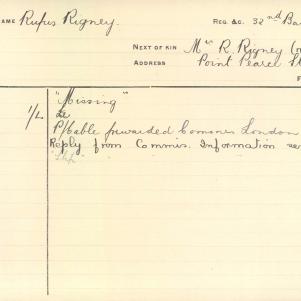 NAME Rufus Rigney. REG. &C. 32nd Ba
NEXT OF KIN Mrs R. Rigney
ADDRESS Point Pearce
"Missing"
1/L
P/Cable forwarded Comsnr London
Reply from Commis. Information